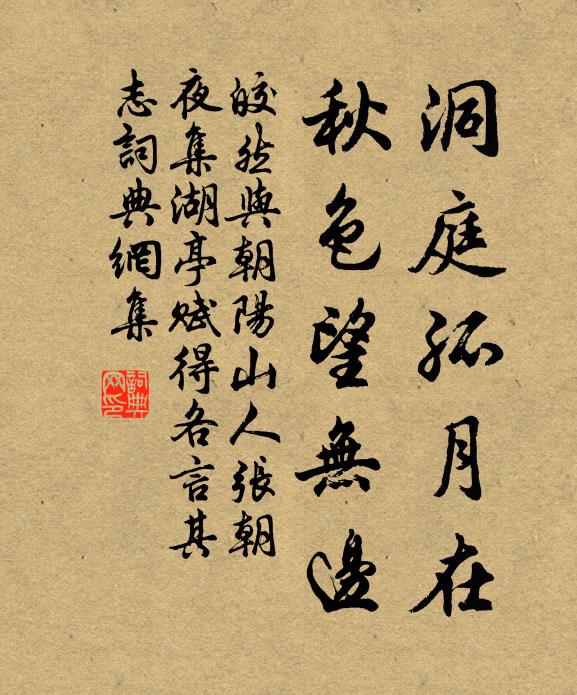 洞庭孤月在
秋色望無邊
皎然與朝陽山人張朝
夜集湖亭賦得各言其
志詞典網集
詞典網印